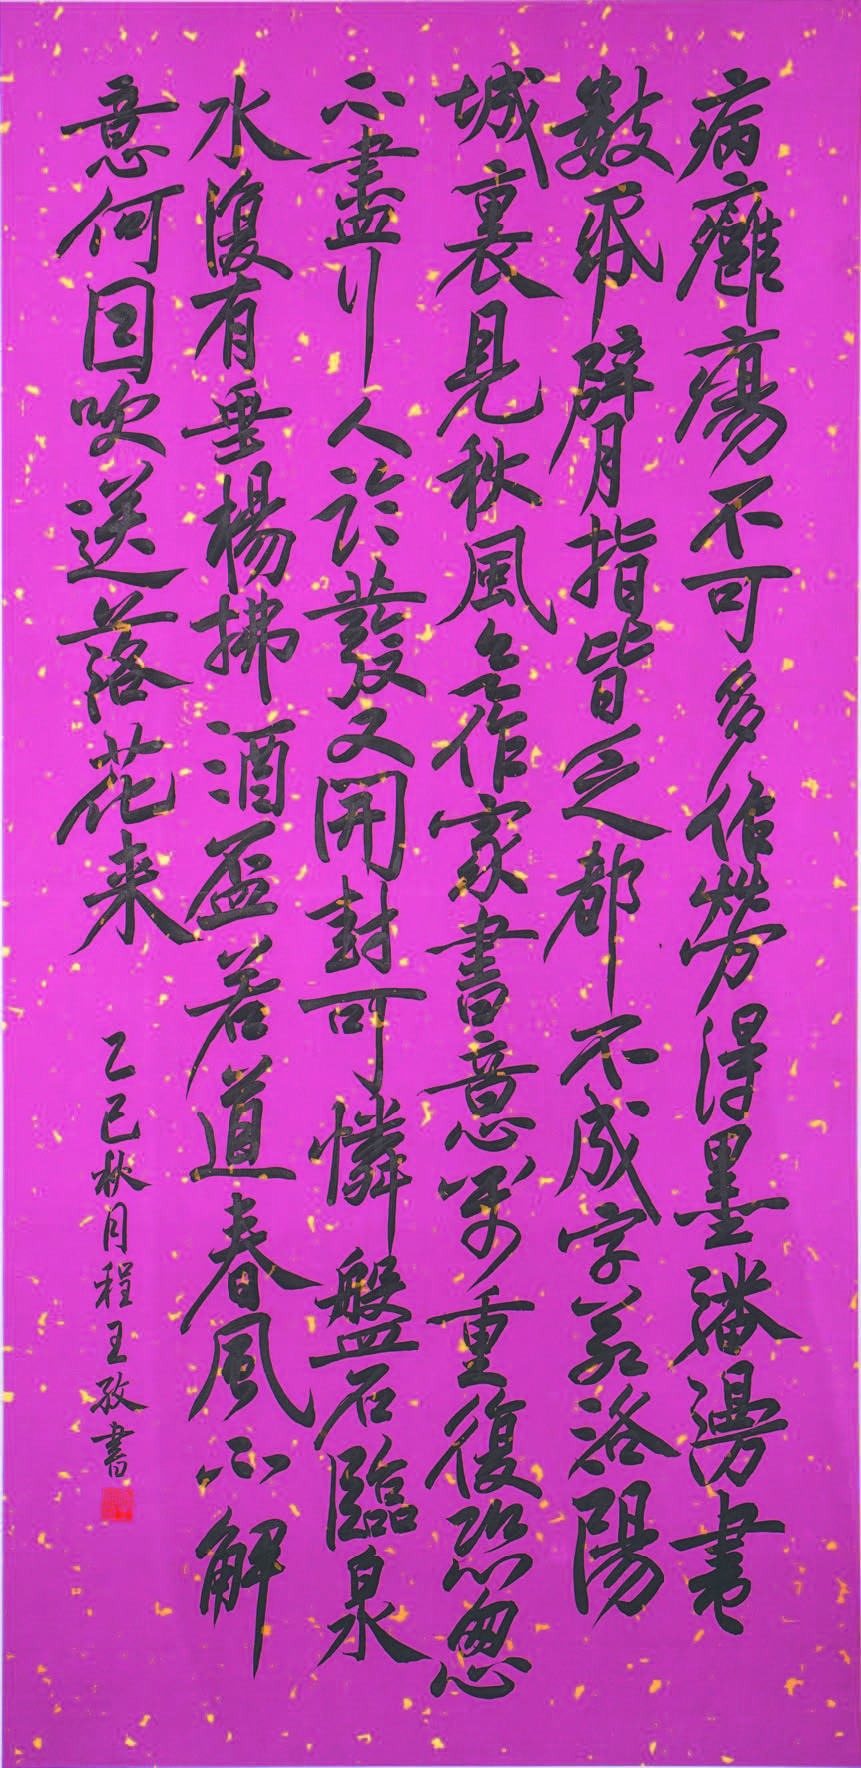 病癰瘍不可多作勞得墨潘漫書
數紙臂指皆乏都不成字若洛陽
城裏見秋風欲作家書意萬重復恐怱
不盡行人臨發又開封可憐盤石臨泉
水復有垂楊拂酒盃若道春風不解
意何因吹送落花来
乙巳秋月程王孜書